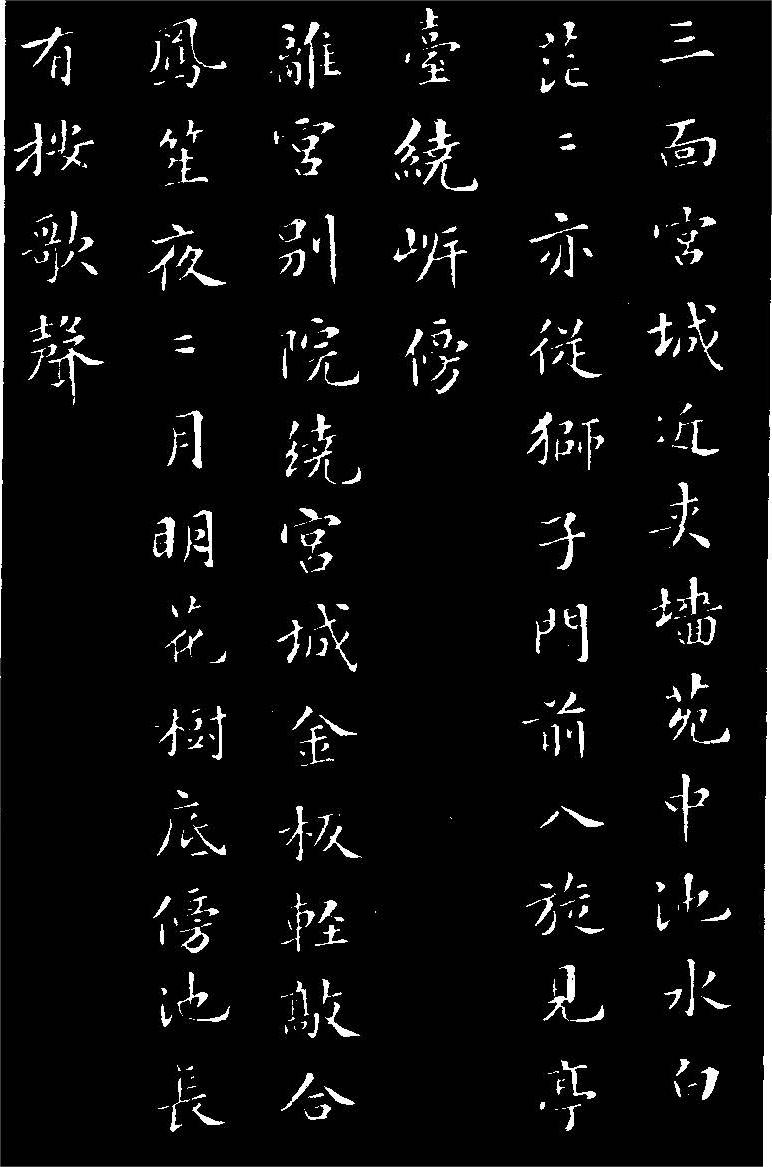 三面宮城近夾墻苑中池水白
茫〻亦從獅子門前入旋見亭
臺繞岸傍
離宮別院繞宮城金板輕敲合
鳳笙夜〻月明花樹底傍池長
有按歌聲